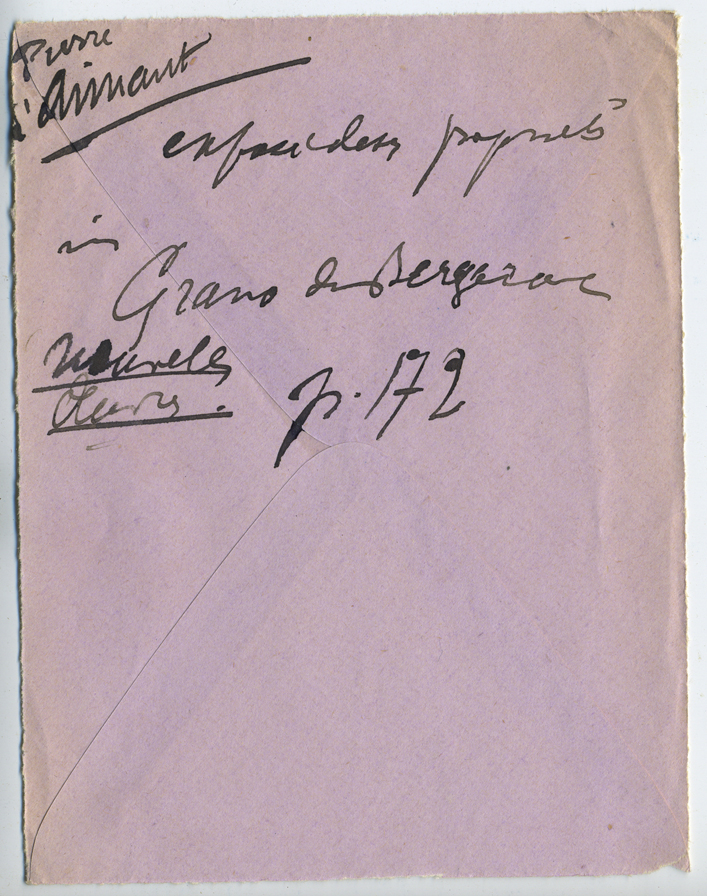 Pierre
d'Aimant
exposé de ses propriétés
in
Cyrano de Bergerac
Nouvelles
Œuvres.
p. 172